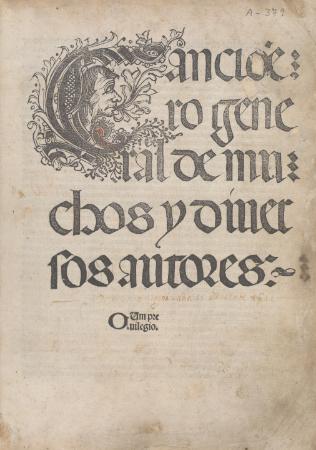 A-379
Cancioe͂:
ro gene
ral de mu:
chos y diuer
sos autores:
Cum pre
uilegio.